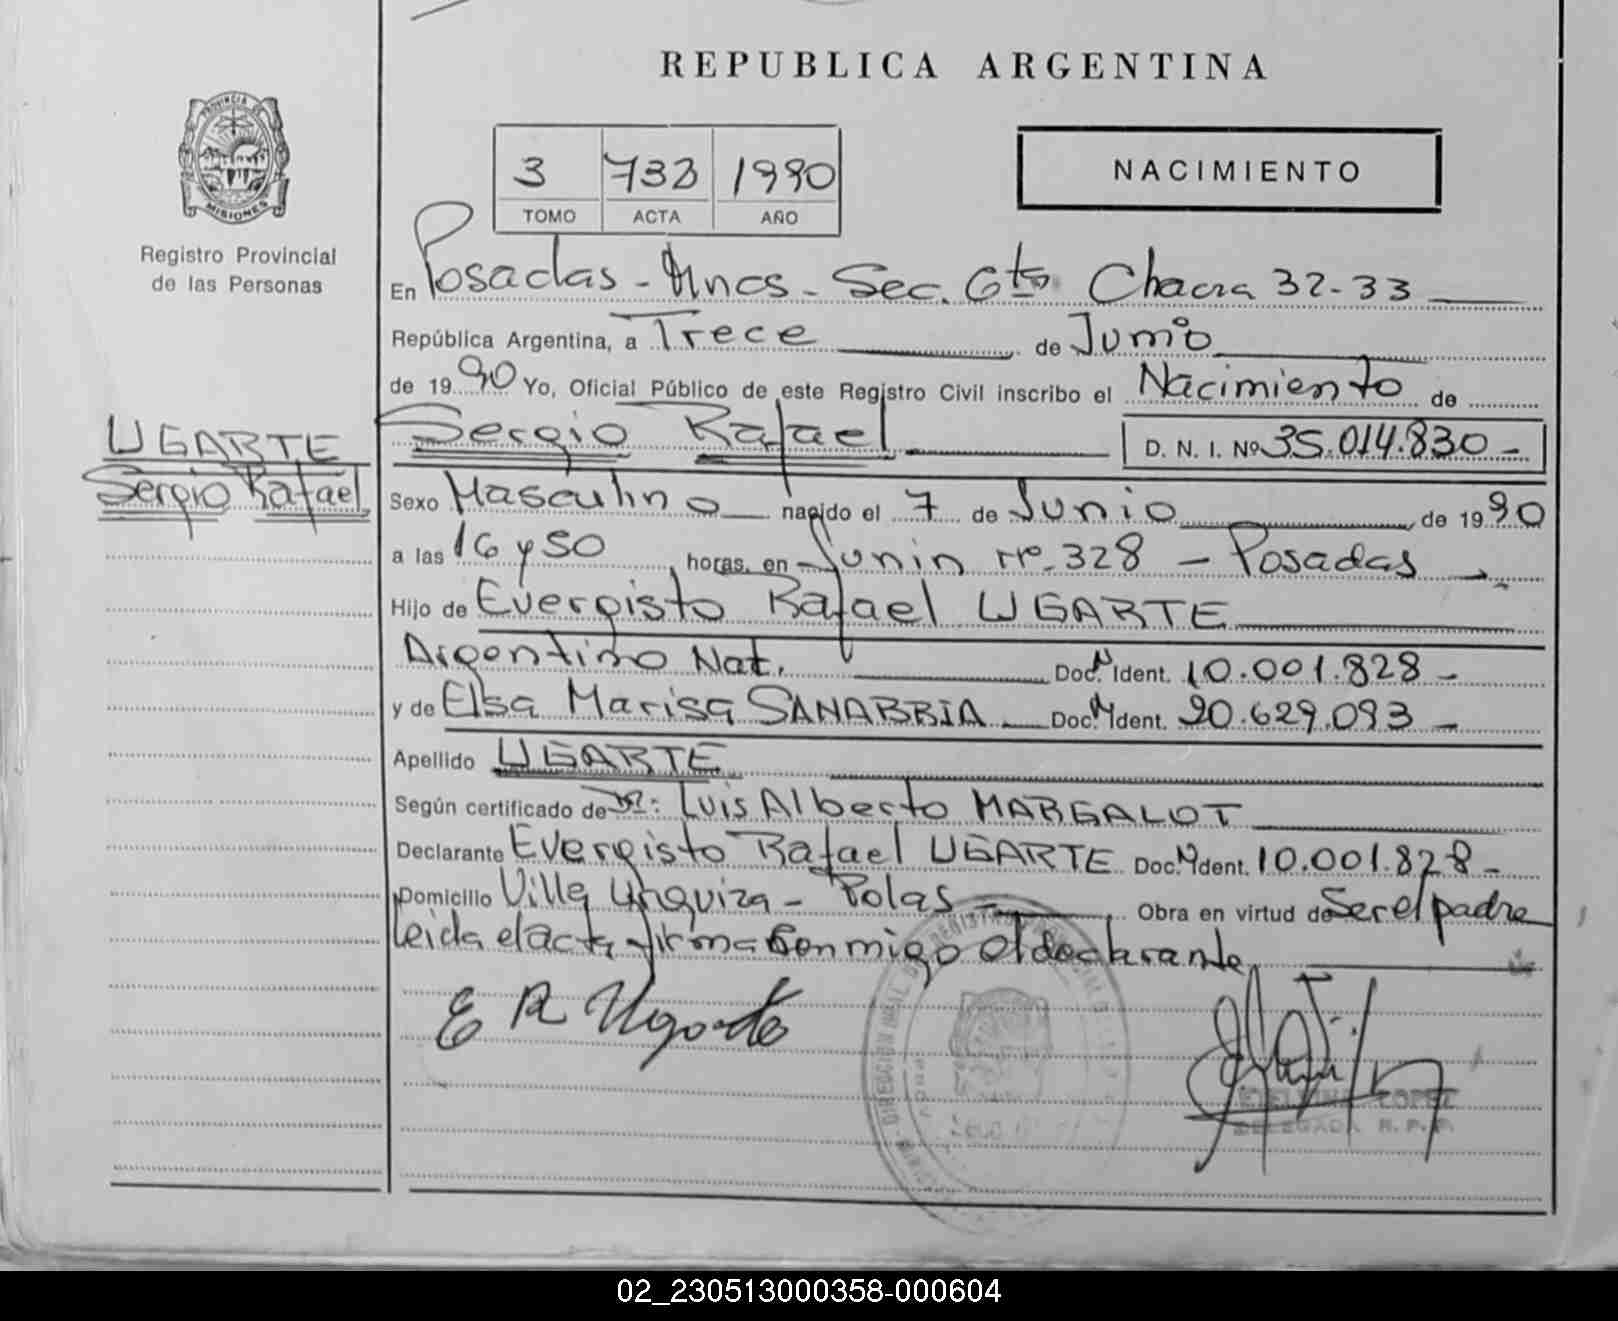 REPUBLICA ARGENTINA
PROVINCIA DE
MISIONES
Registro Provincial
de las Personas
3 733 1990
TOMO ACTA AÑO
NACIMIENTO
En Posadas - Mnes - Sec. 6ta Chacra 32-33
República Argentina, a Trece de Junio
de 1990 Yo, Oficial Público de este Registro Civil inscribo el Nacimiento de
Sergio Rafael D. N. I. Nº 35.014.830-
UGARTE
Sergio Rafael
Sexo Masculino nacido el 7 de Junio de 1990
a las 16 y 50 horas, en Junin nº. 328 - Posadas -.
Hijo de Evergisto Rafael UGARTE
Argentino Nat. Doc. N Ident. 10.001.828-
y de Elsa Marisa SANABRIA Doc. N Ident. 20.629.093-
Apellido UGARTE
Según certificado de Dr: Luis Alberto MARGALOT
Declarante Evergisto Rafael UGARTE Doc. N Ident. 10.001.828-
Domicilio Villa Urquiza - Pdas - Obra en virtud de Ser el padre
leida el acta firma conmigo el declarante
E R Ugarte
LOPEZ
DELEGADA R. P. P.
02_230513000358-000604